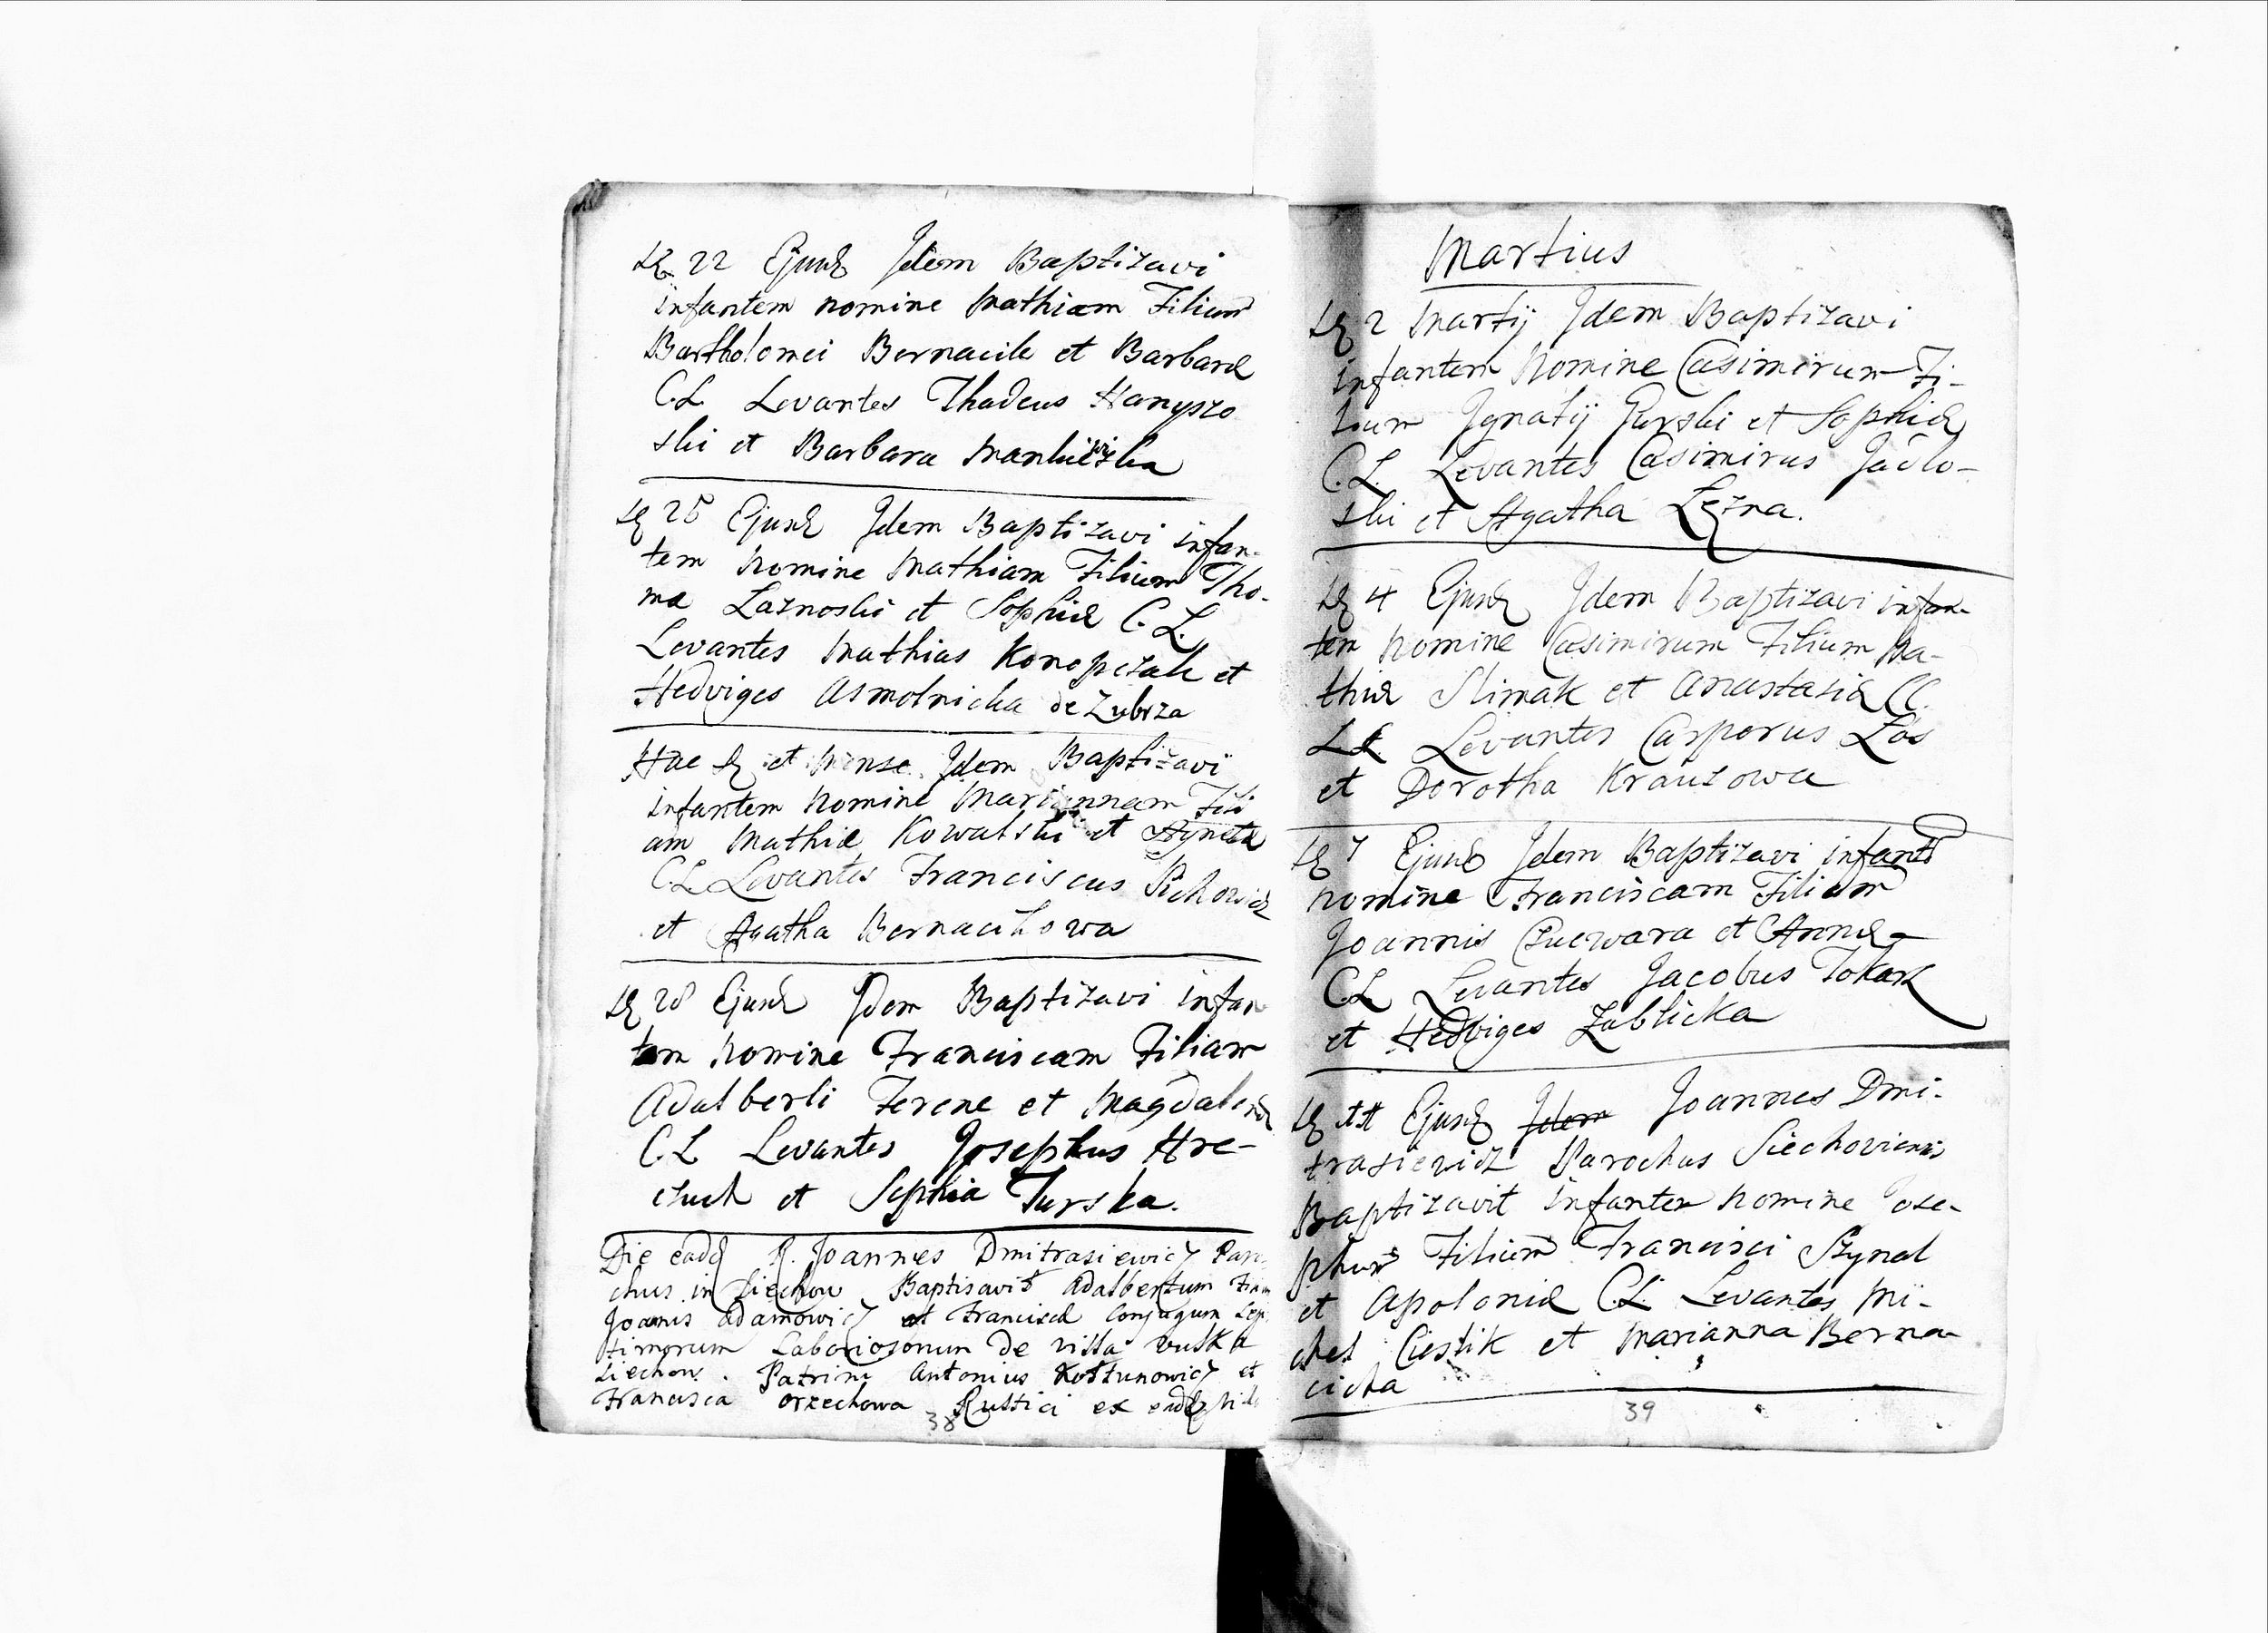 22 Ejusd Idem Baptizavi
infantem nomine Mathiam Filium
Bartholomei Bernacik et Barbaræ
C.L. Levantes Thadeus Hanyszo
ski et Barbara
25 Ejusd Idem Baptizavi infan-
tem nomine Mathiam Filium Tho-
ma Laznoski et Sophiæ C. L.
Levantes Mathias Konopczak et
Hedviges Asmolnicka de Zubrza
Hac et Mense Idem Baptizavi
infantem nomine Mariannam Fili
am Mathiæ Kowalski et Agnetæ
C.L. Levantes Franciscus
et Agatha Bernacikowa
28 Ejusd Idem Baptizavi infan
tem nomine Franciscam Filiam
Adalberti Ferenc et Magdalenæ
C.L Levantes Josephus Hre-
czuch et Sophia Turska.
Die ead R. Joannes Dmitrasiewicz Paro
chus in Siechow Baptisavit Adalbertum
Joanis Adamowicz et Franciscæ Conjugum Legi
timorum Laboriosorum de villa ruska
Siechow. Patrini Antonius Kostunowicz et
Francisca Orzechowa Rustici ex ead
38
Martius
2 Martij Idem Baptizavi
infantem Nomine Casimirum Fi-
lium Ignatij Gurski et Sophiæ
C.L. Levantes Casimirus Jadło-
ski et Agatha Lezna.
4 Ejusd Idem Baptizavi infan-
tem nomine Casimirum Filium Ma-
thiæ Slimak et Anastasiæ CC.
LL Levantes Casporus Łos
et Dorotha Krauzowa
7 Ejusd Idem Baptizavi infant
nomine Franciscam Filiam
Joannis Czuewara et Annæ
C.L Levantes Jacobus Tokarz
et Hedviges Zablicka
11 Ejusd Idem Joannes Dmi-
trasiewicz Parochus Siechoviensis
Baptizavit infantem nomine Jose-
phum Filium Francisci Szynal
et Apoloniæ C.L. Levantes Mi-
chel Ciestik et Marianna Berna-
cicka
39